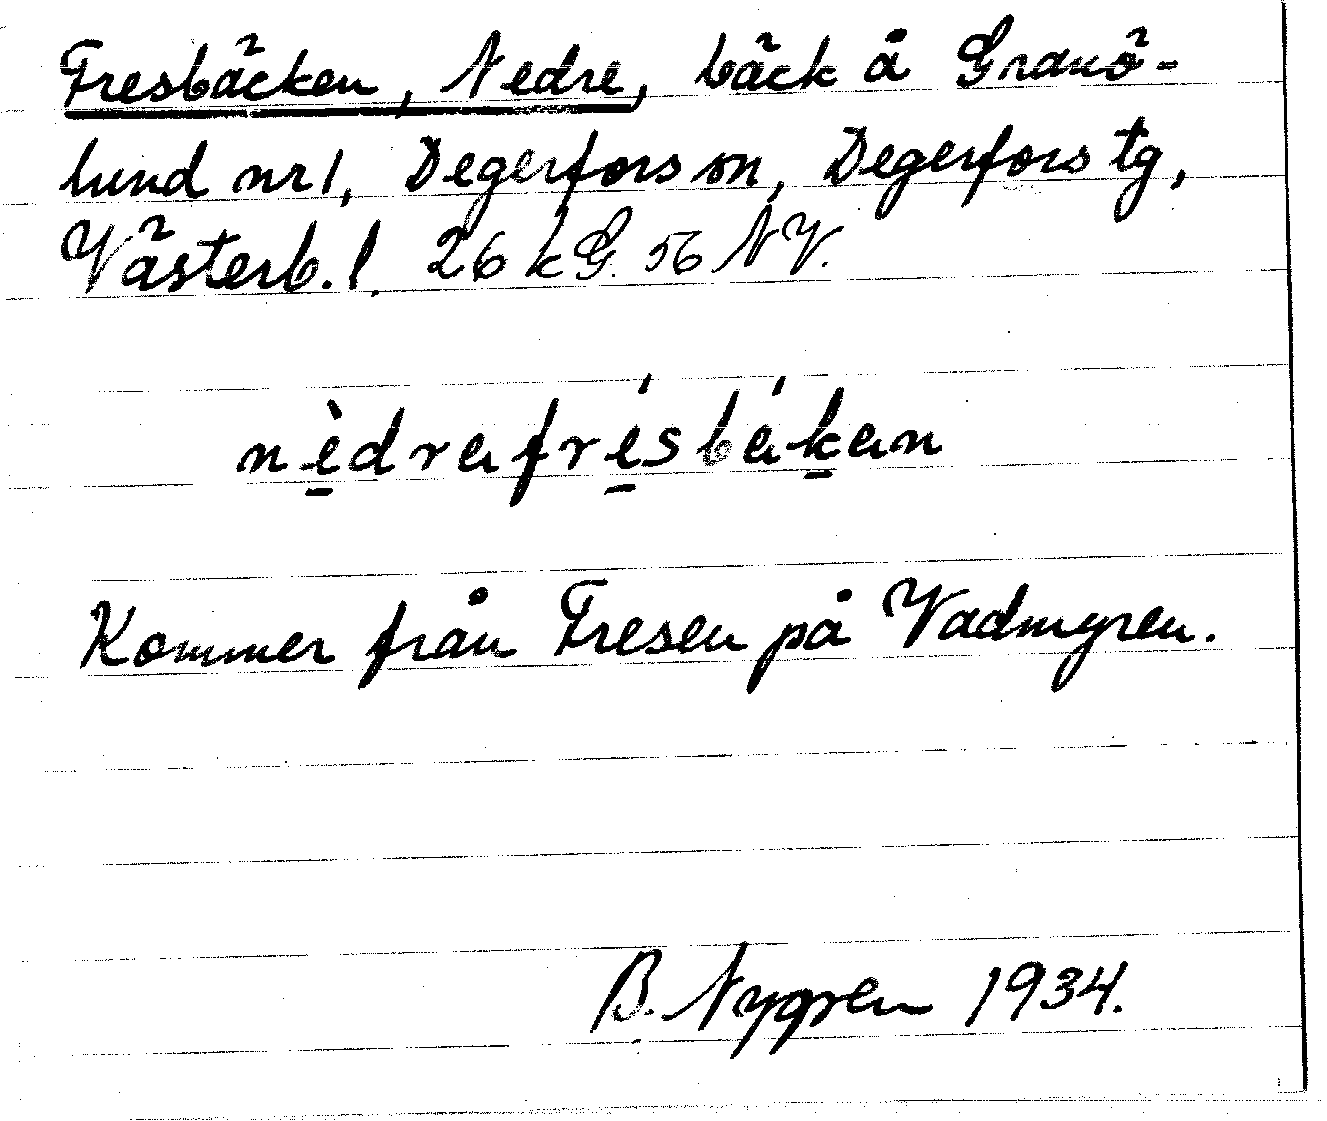 Fresbäcken, Nedre, bäck å Granö-
lund nr 1, Degerfors sn, Degerfors tg,
Västerb. l. 26 k G. 56 NV.
nèdrafrésbákan
Kommer från Fresen på Vadmyren.
B. Nygren 1934.